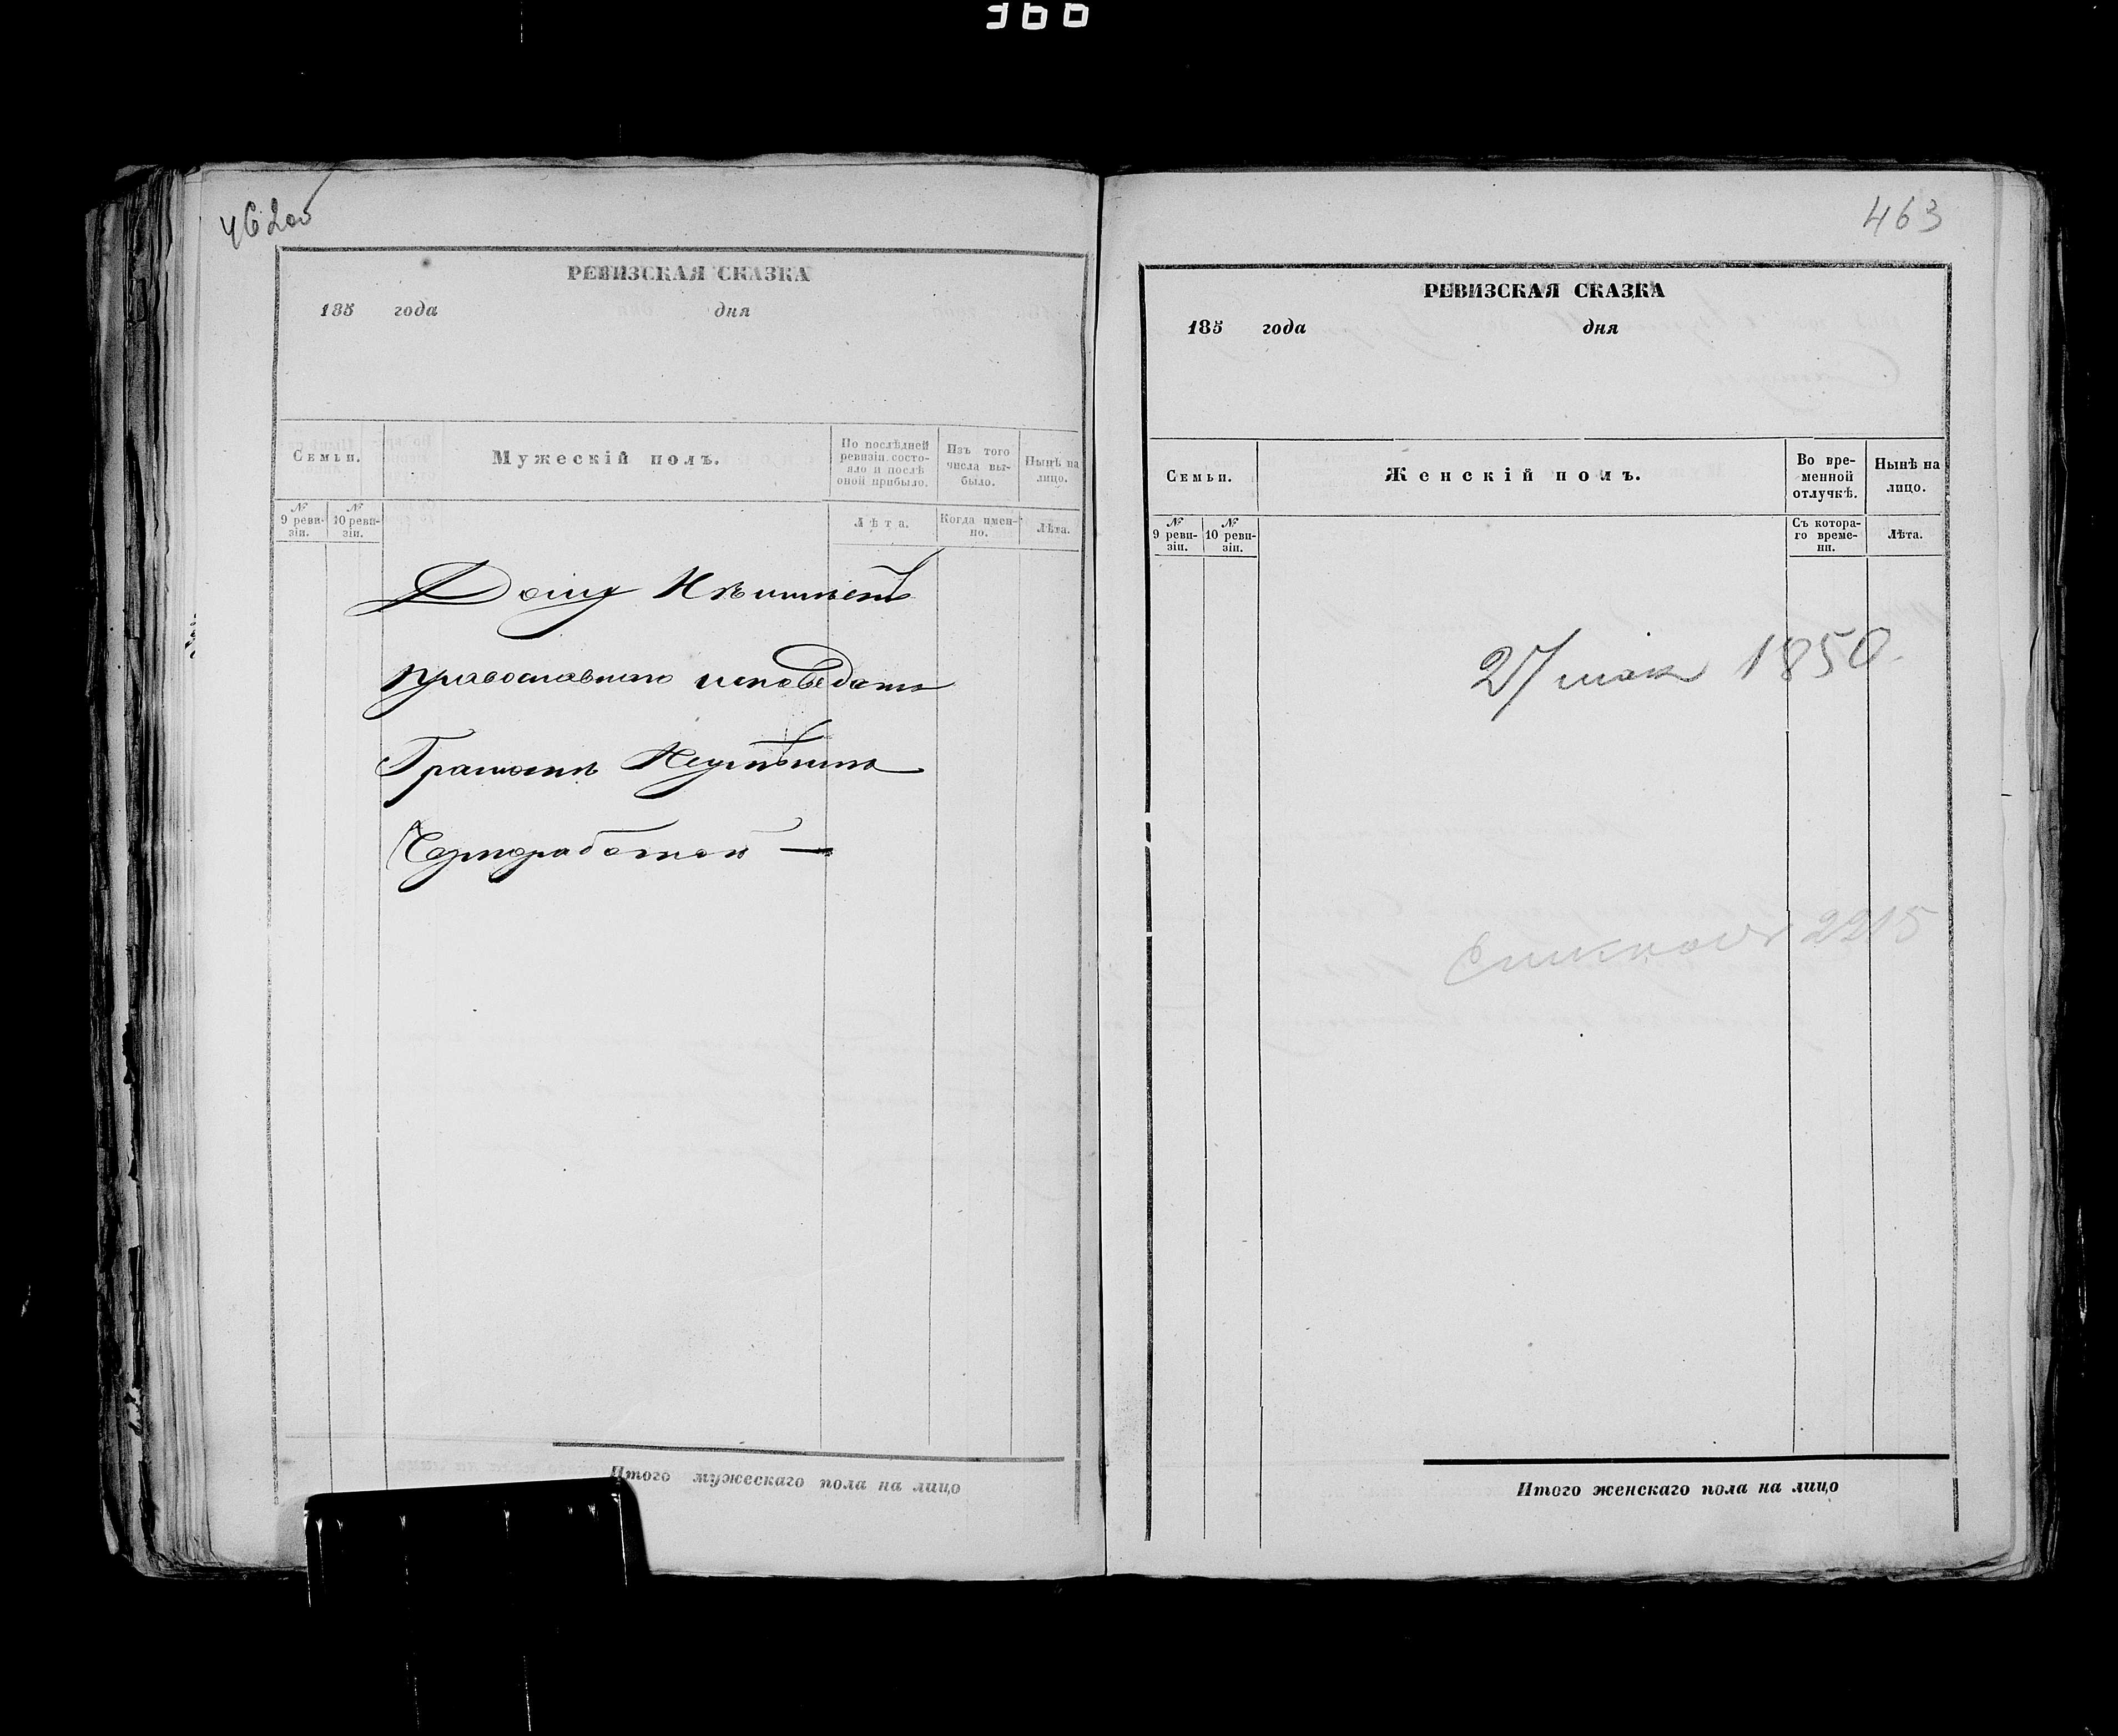 366
462об
РЕВИЗСКАЯ СКАЗКА
185 года дня
Семьи.
Мужескій полъ.
По послѣдней ревизіи состояло и послѣ оной прибыло.
Изъ того числа выбыло.
Нынѣ на лицо.
№ 9 ревизіи.
№ 10 ревизіи.
Лѣта.
Когда именно.
Лѣта.
Дому Неимѣетъ
православнаго исповѣдания
Грамотѣ Неумѣетъ
Чернорабочей —
Итого мужескаго пола на лицо
463
РЕВИЗСКАЯ СКАЗКА
185 года дня
Семьи.
Женскій полъ.
Во временной отлучкѣ.
Нынѣ на лицо.
№ 9 ревизіи.
№ 10 ревизіи.
Съ котораго времени.
Лѣта.
27 мая 1850.
2215
Итого женскаго пола на лицо